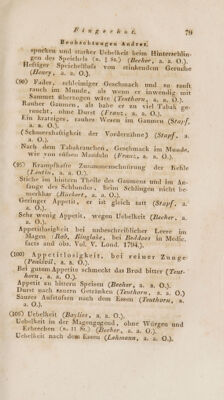 Eingeschoſ. 79
Beobachtungen Andrer.
spucken und starker Uebelkeit beim Hinterschlin-
gen des Speichels (n. ½ St.) (Becher, a. a. O.).
Heftiger Speichelfluß von stinkendem Geruche
(Boury, a. a. O.).
(90) Fader, schleimiger Geschmack und so rauh
rauch im Munde, als wenn er inwendig mit
Sammet überzogen wäre (Teuthorn, a. a. O.)
Rauher Gaumen, als habe er zu viel Tabak ge-
raucht, ohne Durst (Franz, a. a. O.).
Ein kratziges, rauhes Wesen im Gaumen (Stapf,
a. a. O.).
(Schmerzhaftigkeit der Vorderzähne) (Stapf, a.
a. O.).
Nach dem Tabakrauchen, Geschmack im Munde,
wie von süßen Mandeln (Franz, a. a. O.).
(95) Krampfhafte Zusammenschnürung der Kehle
(Lentin, a. a. O.).
Stiche im hintern Theile des Gaumens und im An-
fange des Schlundes, beim Schlingen nicht be-
merkbar (Becher, a. a. O.).
Geringer Appetit, er ist gleich satt (Stapf, a.
a. O.).
Sehr wenig Appetit, wegen Uebelkeit (Becher, a.
a. O.).
Appetitlosigkeit bei unbeschreiblicher Leere im
Magen (Rob, Kinglake, bei Beddoes in Medic.
facts and obs. Vol. V. Lond. 1794.).
(100) Appetitlosigkeit, bei reiner Zunge
(Ponsevil, a. a. O.).
Bei gutem Appetite schmeckt das Brod bitter (Teut-
horn, a. a. O.).
Appetit zu bittern Speisen (Becher, a. a. O.).
Durst nach sauern Getränken (Teuthorn, a. a. O.)
Saures Aufstoßen nach dem Essen (Teuthorn, a.
a. O.).
(105) Uebelkeit (Baylies, a. a. O.).
Uebelkeit in der Magengegend, ohne Würgen und
Erbrechen (n. 11 St.) (Becher, a. a. O.).
Uebelkeit nach dem Essen (Lehmann, a. a. O.).